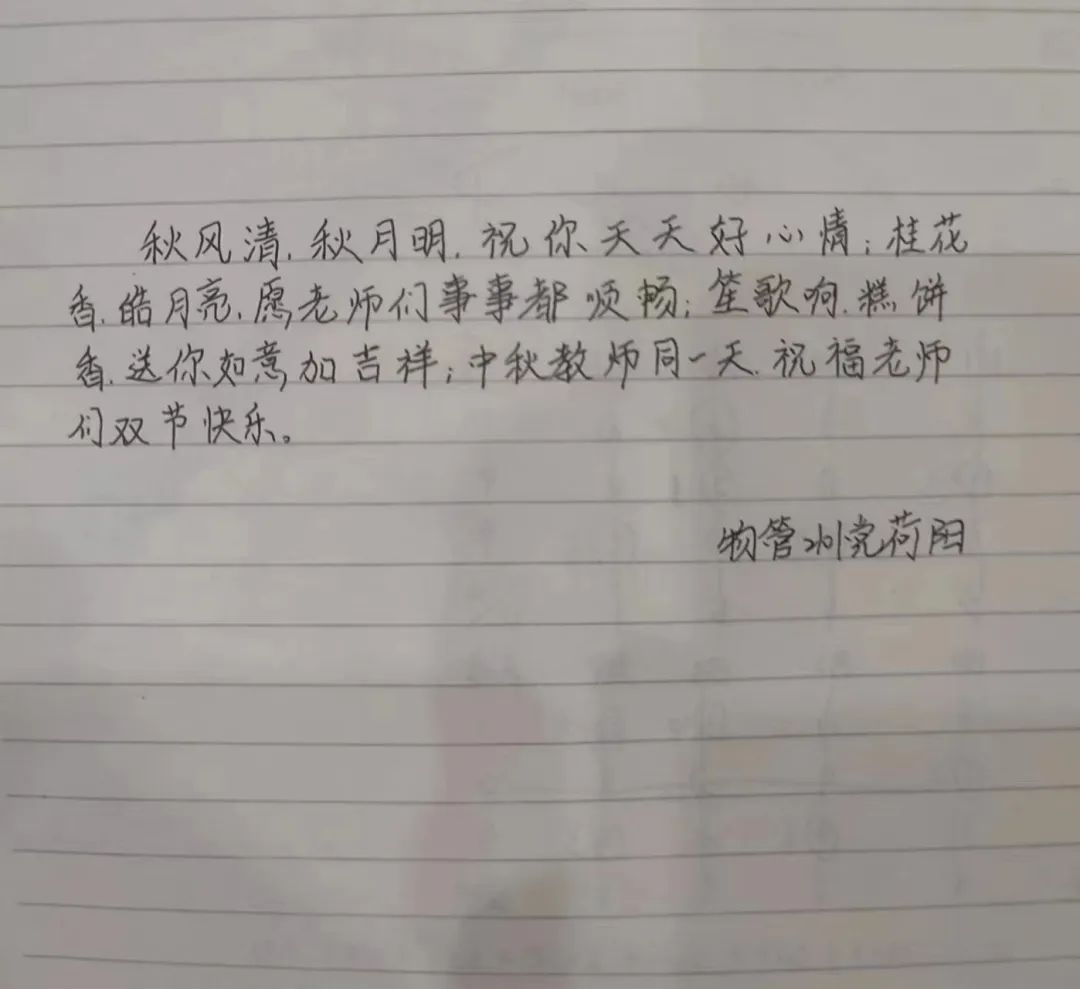 秋风清,秋月明,祝你天天好心情;桂花
香,皓月亮,愿老师们事事都顺畅;笙歌响,糕饼
香,送你如意加吉祥;中秋教师同一天,祝福老师
们双节快乐。
物管2111党荷阳